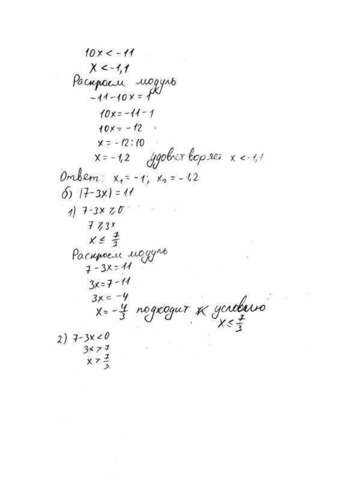 10x < -11
x < -1,1
Раскроем модуль
-11-10x = 1
10x = -11-1
10x = -12
x = -12:10
x = -1,2 удовлетворяет x < -1,1
Ответ: x₁ = -1; x₂ = -1,2
б) |7-3x| = 11
1) 7-3x ≥ 0
7 ≥ 3x
x ≤ 7/3
Раскроем модуль
7-3x = 11
3x = 7-11
3x = -4
x = -4/3 подходит к условию
x ≤ 7/3
2) 7-3x < 0
3x > 7
x > 7/3